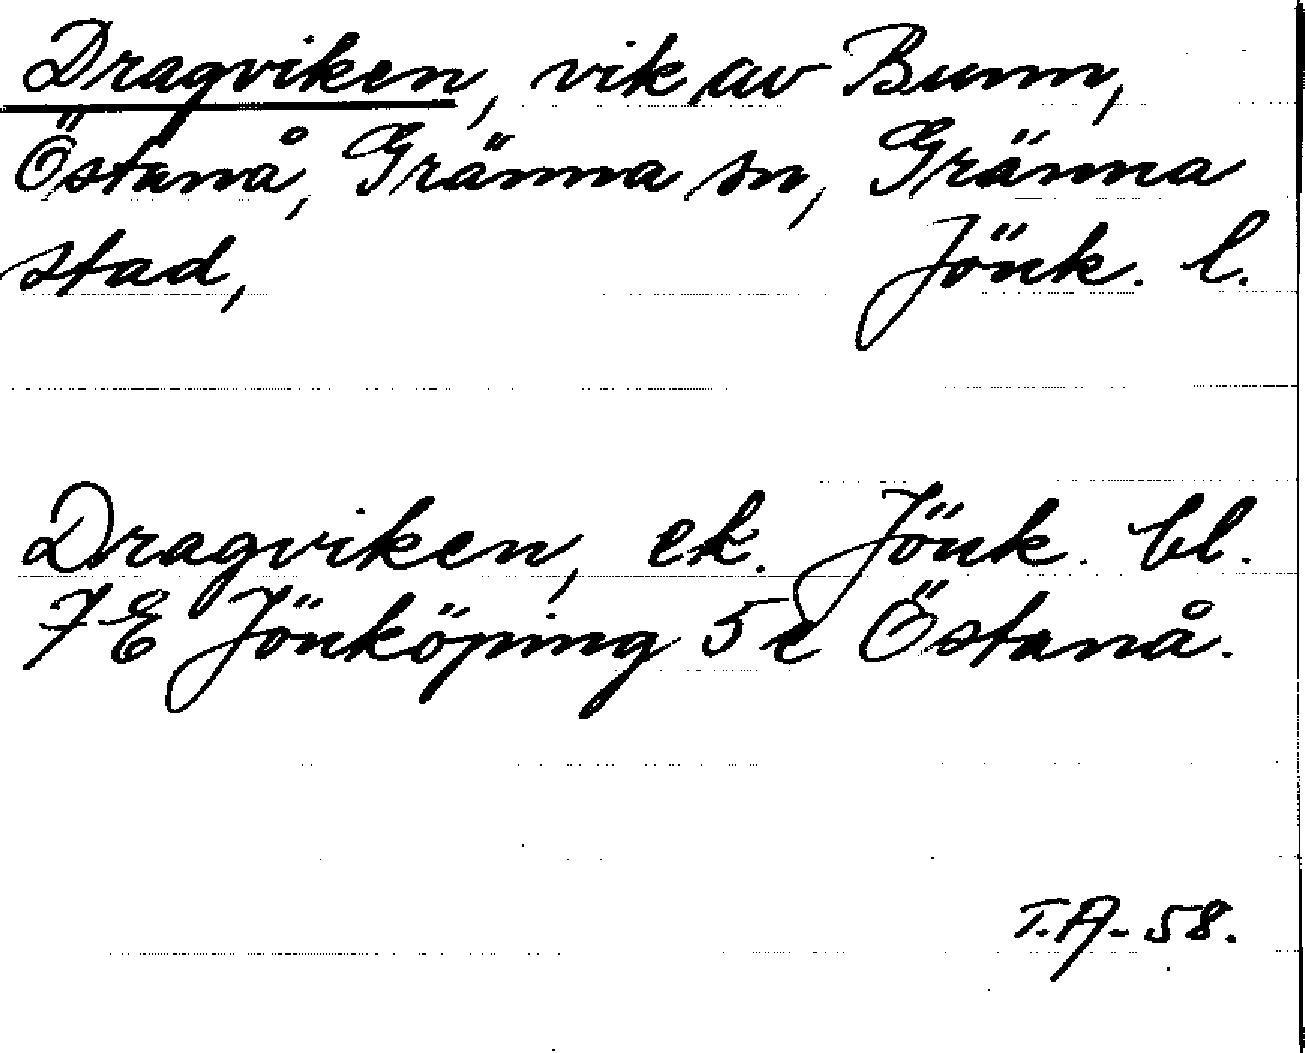 Dragviken, vik av Bunn,
Östanå, Gränna sn, Gränna
stad, Jönk. l.
Dragviken, ek. Jönk. bl.
7E Jönköping 5e Östanå.
T.A-58.